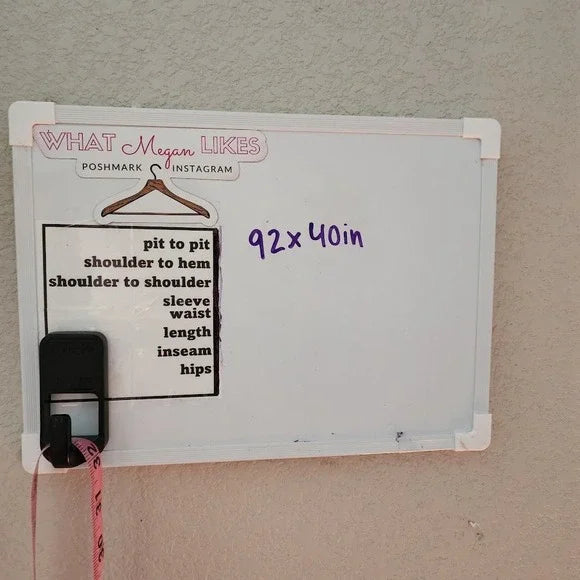 WHAT Megan LIKES
POSHMARK INSTAGRAM
pit to pit
shoulder to hem
shoulder to shoulder
sleeve
waist
length
inseam
hips
92x40in
32
31
30